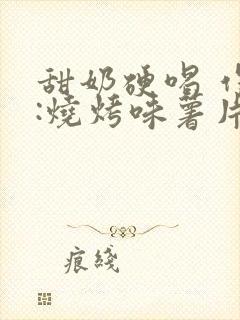 甜奶硬唱 作
:燒烤味薯片
痕綫